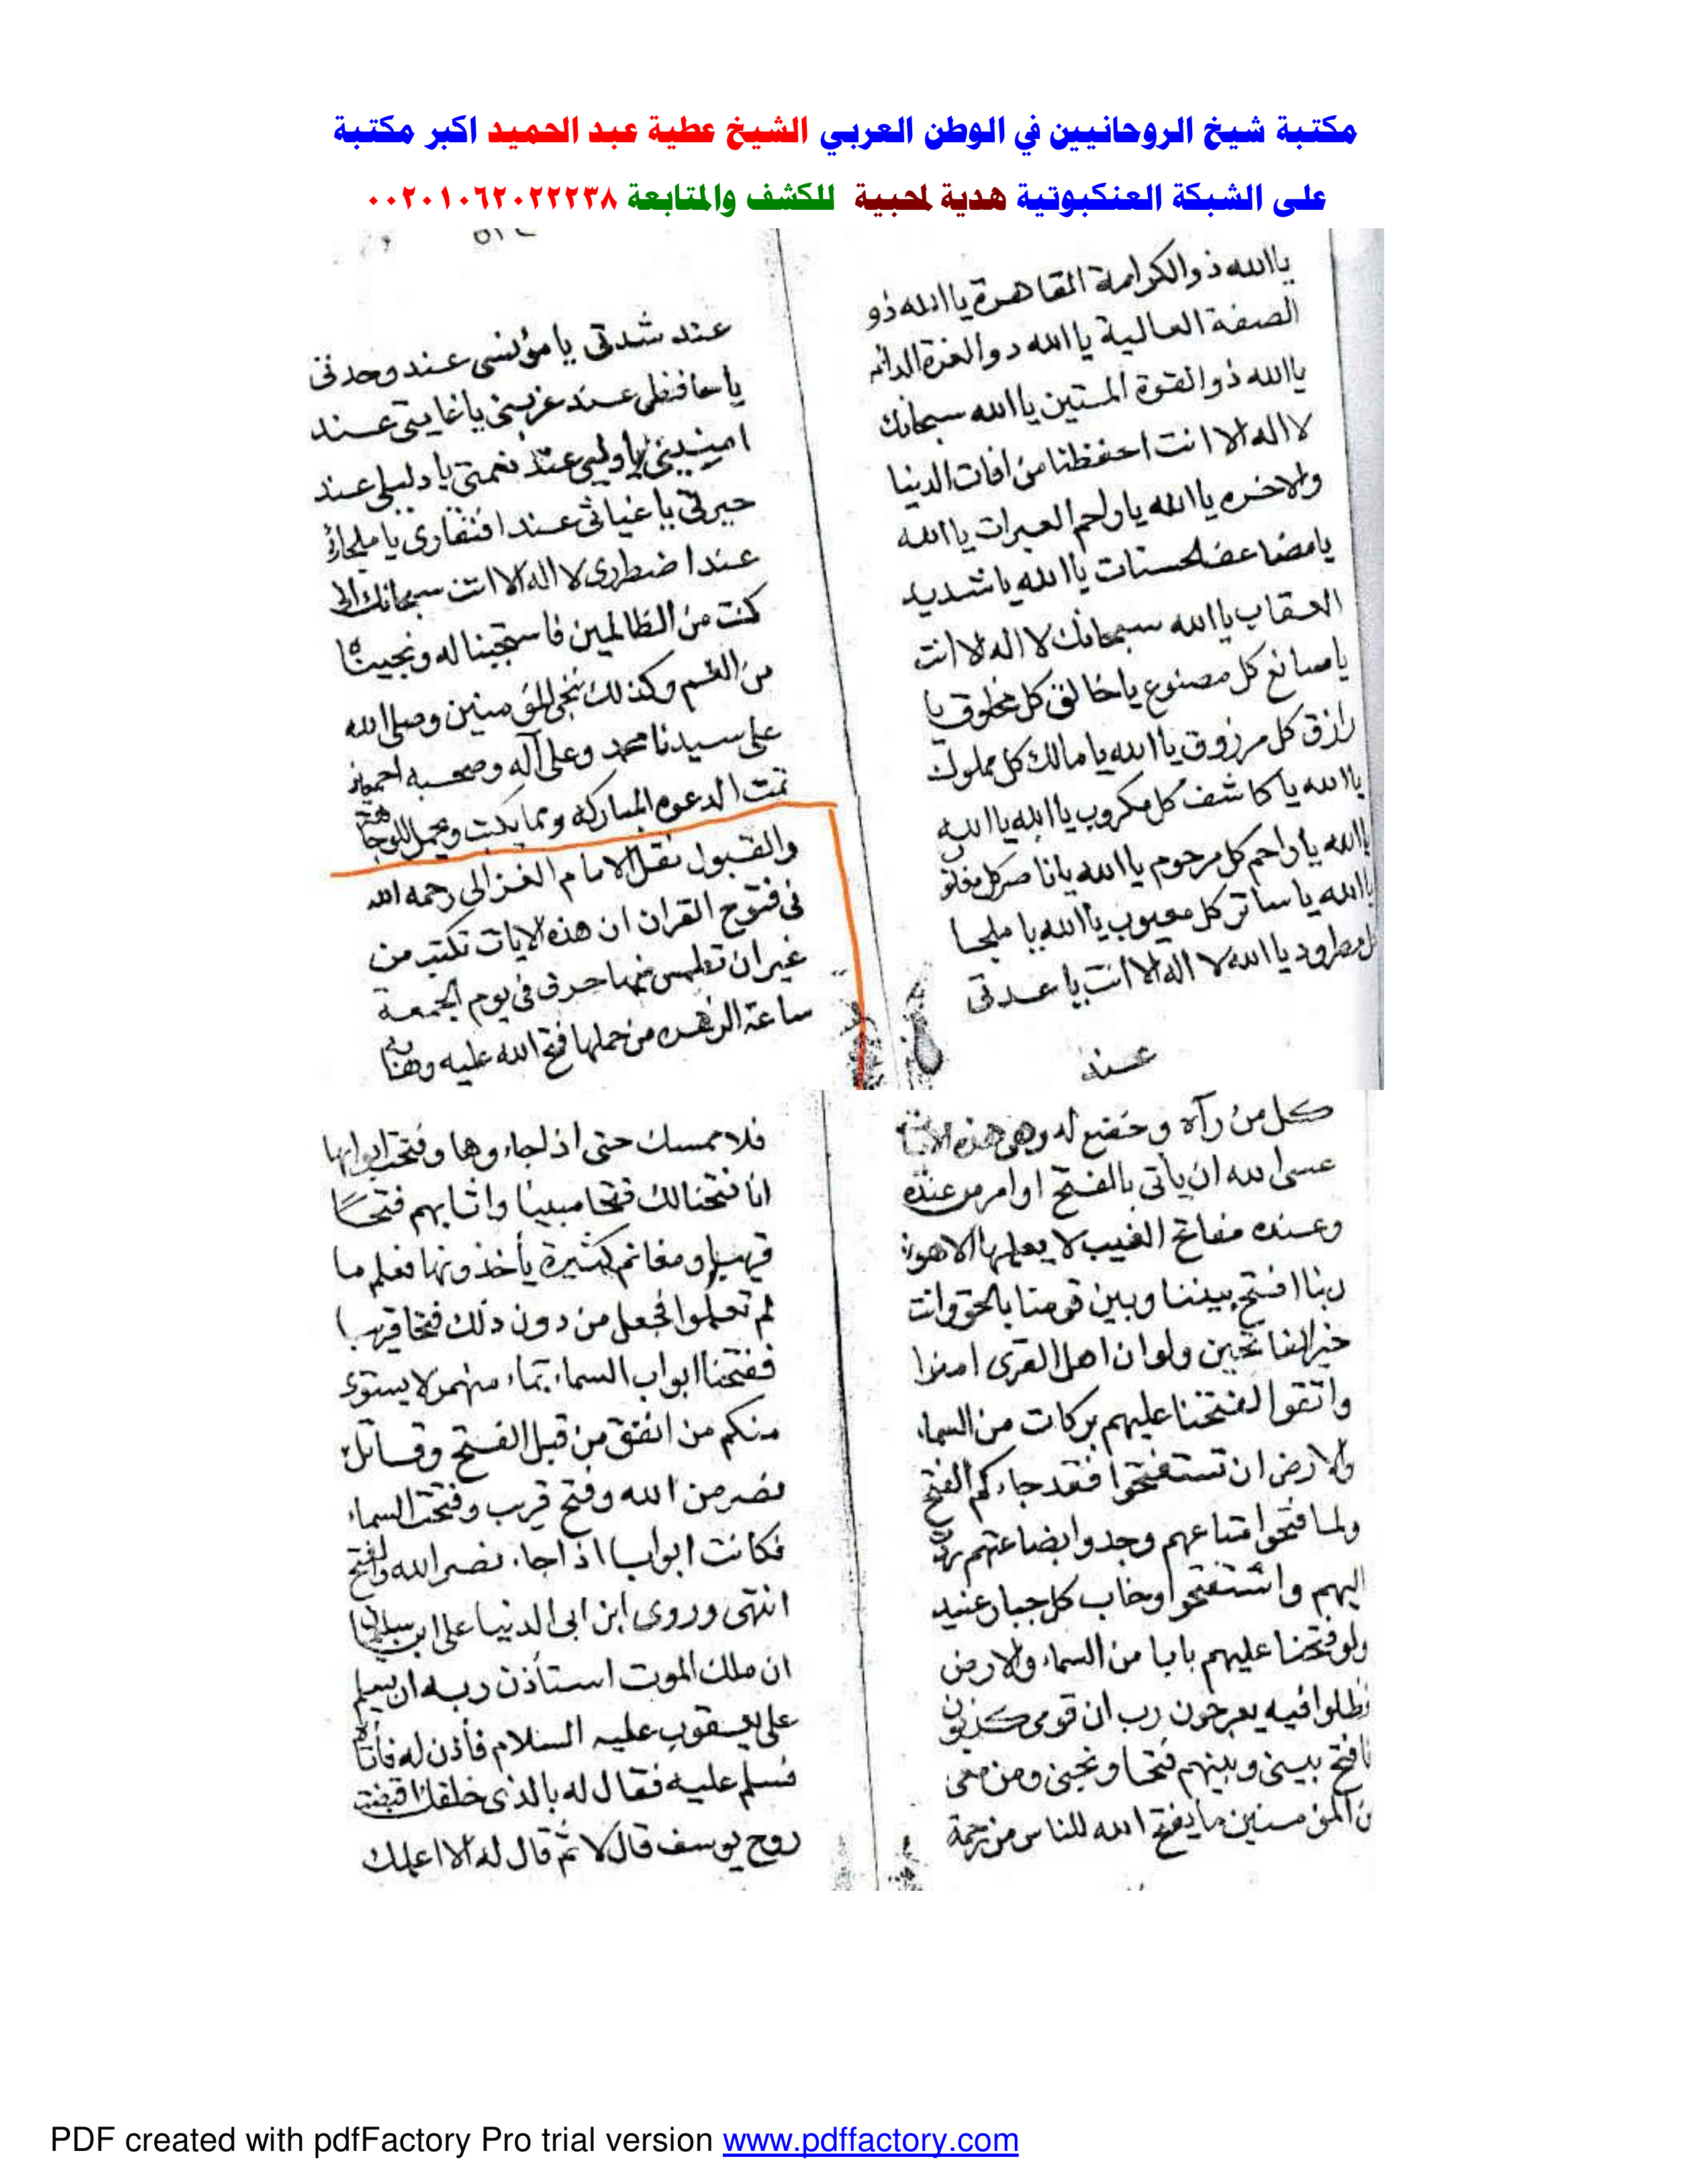 مكتبة شيخ الروحانيين في الوطن العربي الشيخ عطية عبد الحميد اكبر مكتبة
على الشبكة العنكبوتية هدية لمحبية للكشف والمتابعة ٠٠٢٠١٠٦٢٠٢٢٢٣٨
يا الله ذو الكرامة القاهرة يا الله ذو
الصفة العالية يا الله ذو العزة الدائمه
يا الله ذو القوة المتين يا الله سبحانك
لا اله الا انت احفظنا من افات الدنيا
والاخره يا الله يا راحم العبرات يا الله
يا مضاعف الحسنات يا الله يا شديد
العقاب يا الله سبحانك لا اله الا انت
يا صانع كل مصنوع يا خالق كل مخلوق يا
رازق كل مرزوق يا الله يا مالك كل مملوك
يا الله يا كاشف كل مكروب يا الله يا الله
يا الله يا راحم كل مرحوم يا الله يا ناصر كل مغلوب
يا الله يا ساتر كل معيوب يا الله يا ملجا
كل مطرود يا الله لا اله الا انت يا عدتى
عند
عند شدتى يا مؤنسى عند وحدتى
يا حافظى عند غربتى يا غايتى عند
يا وليى عند نعمتى يا دليلى عند
حيرتى يا غياثى عند افتقارى يا ملجائى
عند اضطرارى لا اله الا انت سبحانك انى
كنت من الظالمين فاستجبنا له ونجيناه
من الغم وكذلك ننجى المؤمنين وصلى الله
على سيدنا محمد وعلى آله وصحبه اجمعين
تمت الدعوه المباركه ومما يكتب ويحمل للوجاهة
والقبول نقل الامام الغزالى رحمه الله
فى فتوح القران ان هذه الايات تكتب من
غير ان تطمس منها حرف فى يوم الجمعة
ساعة الزهره من حملها فتح الله عليه وهابه
كل من رآه وخضع له وهى هذه الايات
عسى الله ان يأتى بالفتح او امر من عنده
وعنده مفاتح الغيب لا يعلمها الا هو
ربنا افتح بيننا وبين قومنا بالحق وانت
خير الفاتحين ولو ان اهل القرى امنوا
واتقوا لفتحنا عليهم بركات من السماء
والارض ان تستفتحوا فقد جاءكم الفتح
ولما فتحوا متاعهم وجدوا بضاعتهم ردت
اليهم واستفتحوا وخاب كل جبار عنيد
ولو فتحنا عليهم بابا من السماء والارض
فظلوا فيه يعرجون رب ان قومى كذبون
فافتح بينى وبينهم فتحا ونجنى ومن معى
من المؤمنين ما يفتح الله للناس من رحمة
فلا ممسك حتى اذا جاءوها وفتحت ابوابها
انا فتحنا لك فتحا مبينا واثابهم فتحا
قريبا ومغانم كثيرة يأخذونها فعلم ما
لم تعلموا فجعل من دون ذلك فتحا قريبا
ففتحنا ابواب السماء بماء منهمر لا يستوى
منكم من انفق من قبل الفتح وقاتل
نصر من الله وفتح قريب وفتحت السماء
فكانت ابوابا اذا جاء نصر الله والفتح
انتهى وروى ابن ابى الدنيا على ابن
ان ملك الموت استأذن ربه ان يسلم
على يعقوب عليه السلام فأذن له فأتاه
فسلم عليه فقال له بالذى خلقك اقبضت
روح يوسف قال لا ثم قال له الا اعلمك
PDF created with pdfFactory Pro trial version www.pdffactory.com